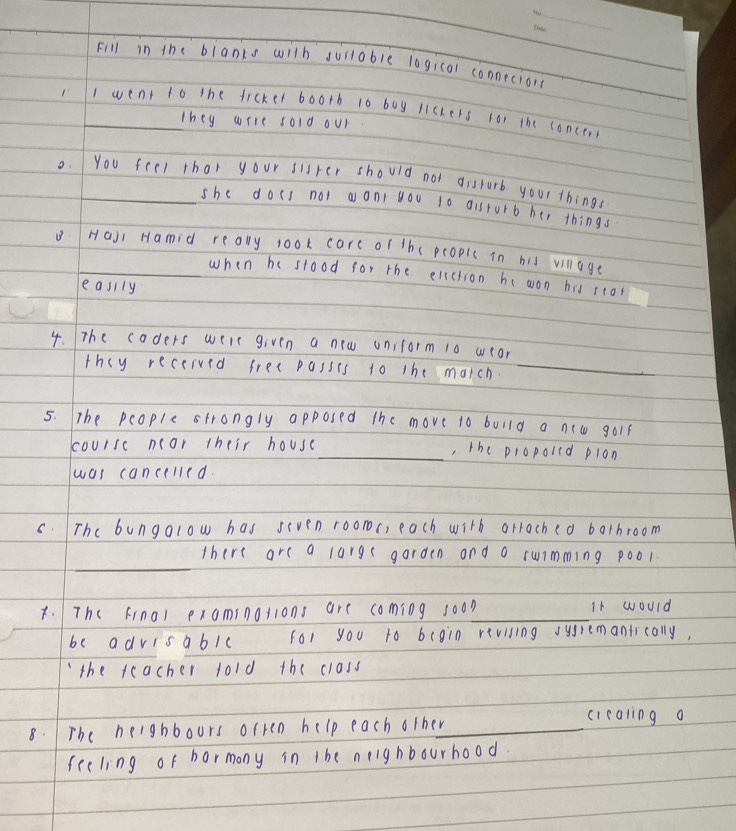 No
Date
Fill in the blanks with suitable logical connectors
1 I went to the ticket booth to buy tickets for the concert
____________ they were sold out.
2. You feel that your sister should not disturb your things.
____________ she does not want you to disturb her things.
3 Haji Hamid really took care of the people in his village
____________ when he stood for the election he won his seat
easily
4. The cadets were given a new uniform to wear ____________
they received free passes to the match.
5. The people strongly opposed the move to build a new golf
course near their house ____________, the proposed plan
was cancelled.
6. The bungalow has seven rooms, each with attached bathroom
____________ there are a large garden and a swimming pool.
7. The final examinations are coming soon ____________ it would
be advisable for you to begin revising systemantically,
'the teacher told the class
8. The neighbours often help each other ____________ creating a
feeling of harmony in the neighbourhood.